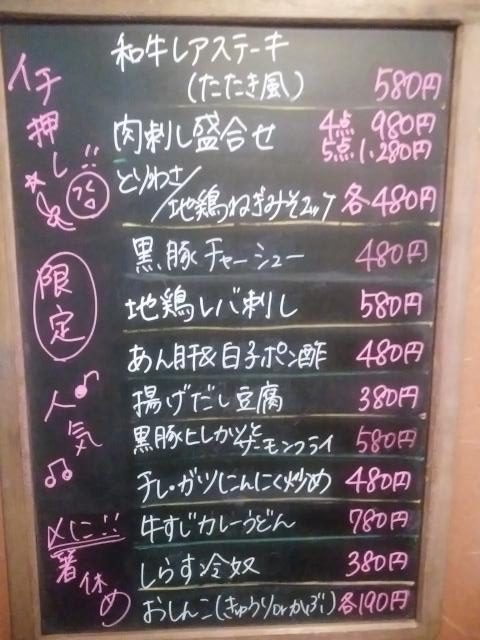 イチ押し!!
和牛レアステーキ
(たたき風) 580円
肉刺し盛合せ 4点 980円
5点 1.280円
とりわさ/
地鶏ねぎみそユッケ 各480円
限定
黒豚チャーシュー 480円
地鶏レバ刺し 580円
人気
あん肝&白子ポン酢 480円
揚げだし豆腐 380円
黒豚ヒレかつと
サーモンフライ 580円
チレ・ガツにんにく炒め 480円
〆に!!
牛すじカレーうどん 780円
箸休め
しらす冷奴 380円
おしんこ(きゅうりorかぶ) 各190円